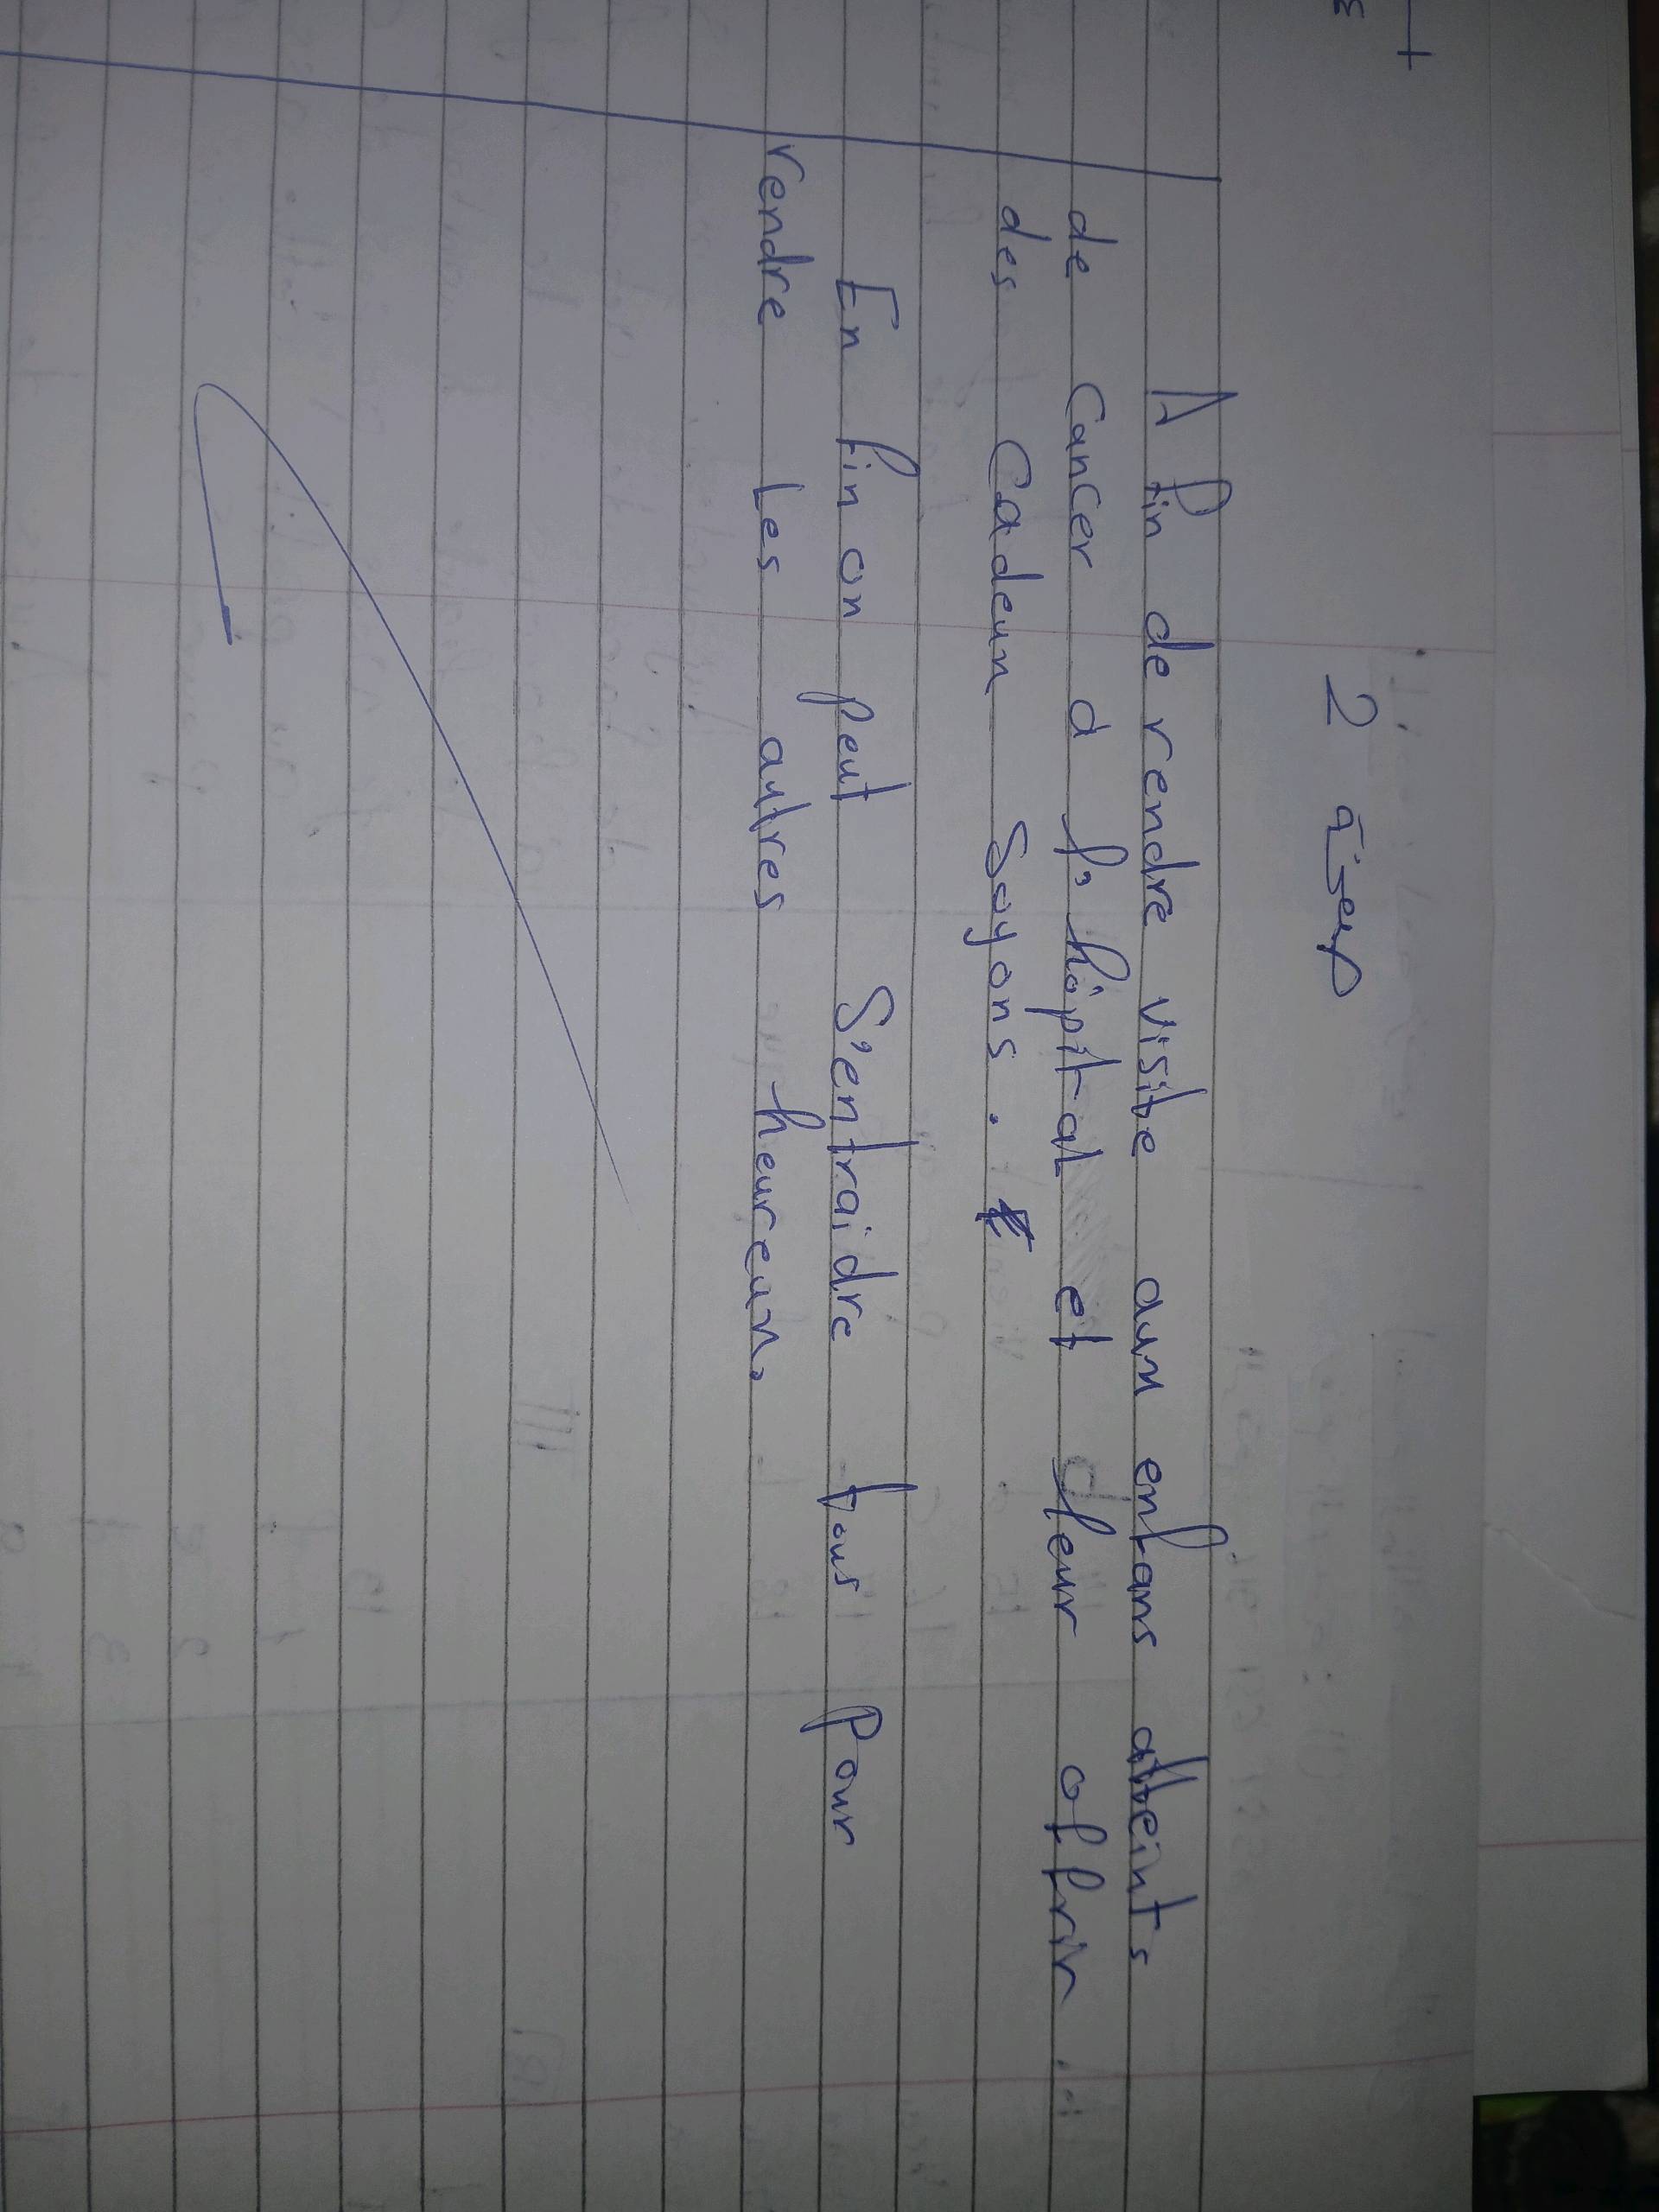 2
A fin de rendre visite aux enfans atteints
de Cancer a l'hôpital et leur offrir
des Cadeux Soyons.
En fin on peut S'entraidre tous Pour
rendre Les autres heureux.